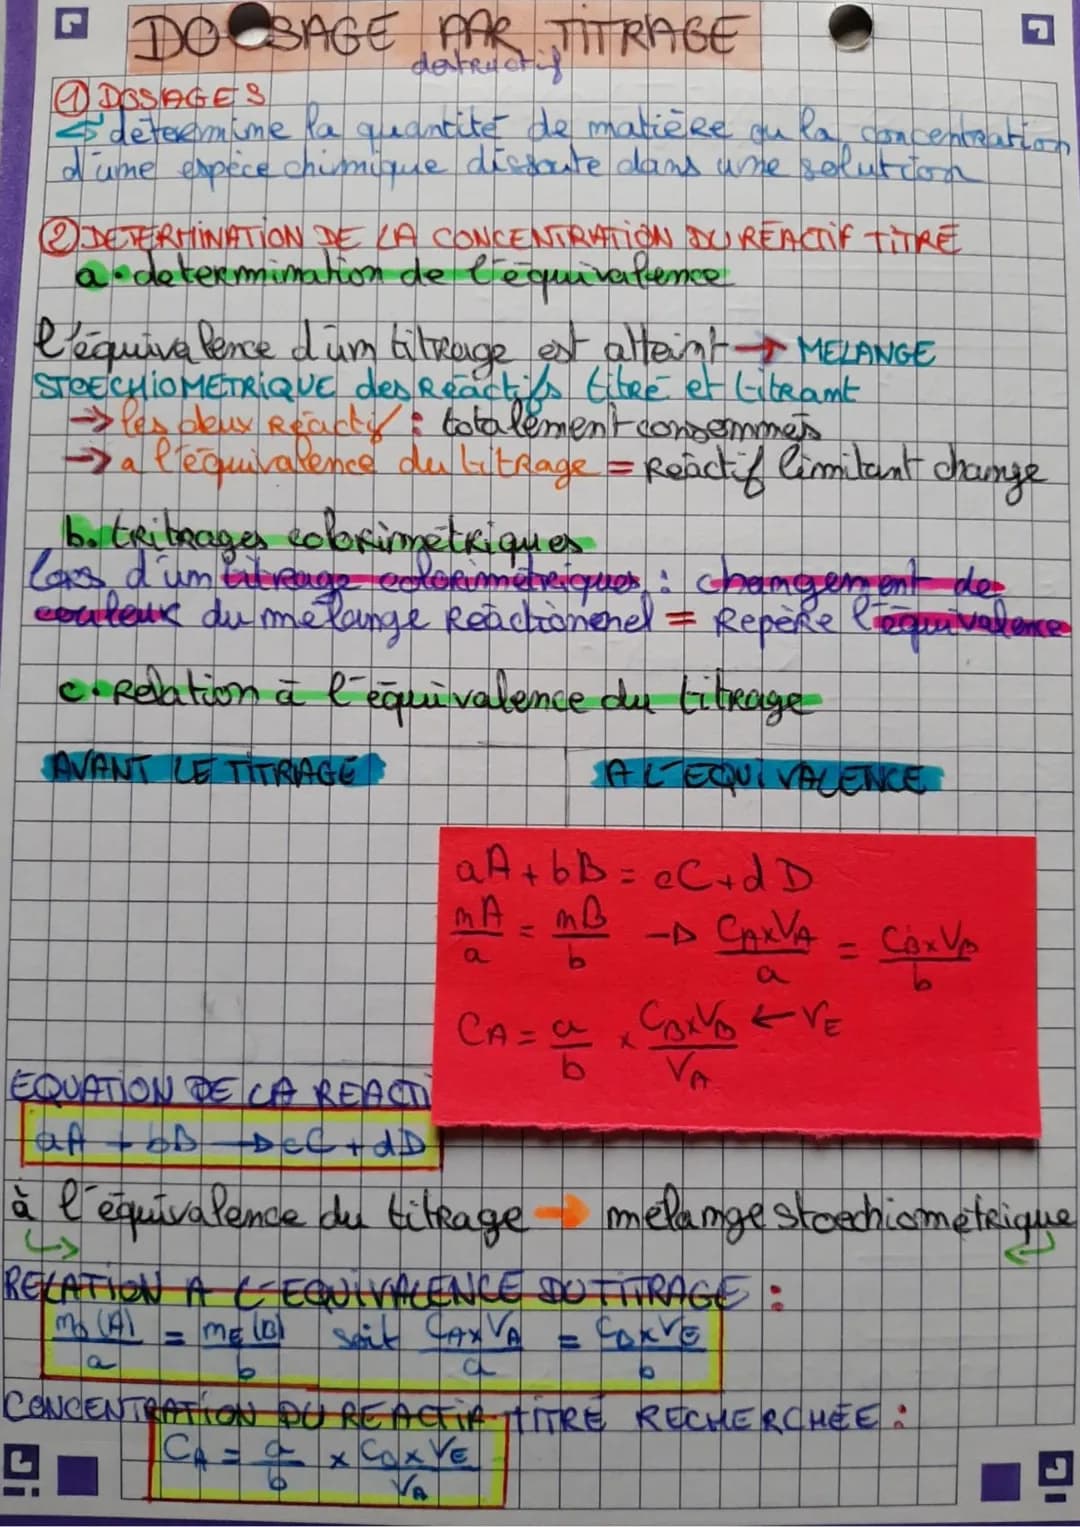 DOSAGE PAR TITRAGE
destructif
① DOSAGES
↳ détermine la quantité de matière ou la concentration
d'une espèce chimique dissoute dans une solution
② DETERMINATION DE LA CONCENTRATION DU RÉACTIF TITRÉ
a. determination de l'équivalence
l'équivalence d'un titrage est atteint → MELANGE
STOECHIOMETRIQUE des Réactifs titré et titrant
→ les deux Réactif : totalement consommés
→ a l'équivalence du titrage = Réactif limitant change
b. tritrages colorimétriques
Lors d'un titrage colorimétriques : changement de
couleur du mélange Réactionenel = Repère l'équivalence
c. Relation à l'équivalence du titrage
AVANT LE TITRAGE
A L'EQUIVALENCE
aA + bB = cC + dD
nA/a = nB/b → CA×VA/a = CB×VB/b
CA = a/b × CB×VB/VA ← VE
EQUATION DE LA REACTI
aA + bB → cC + dD
à l'équivalence du titrage → mélange stoechiométrique
RELATION A L'EQUIVALENCE DU TITRAGE :
n0(A)/a = nE(B)/b soit CA×VA/a = CB×VE/b
CONCENTRATION DU REACTIF TITRÉ RECHERCHÉE :
CA = a/b × CB×VE/VA